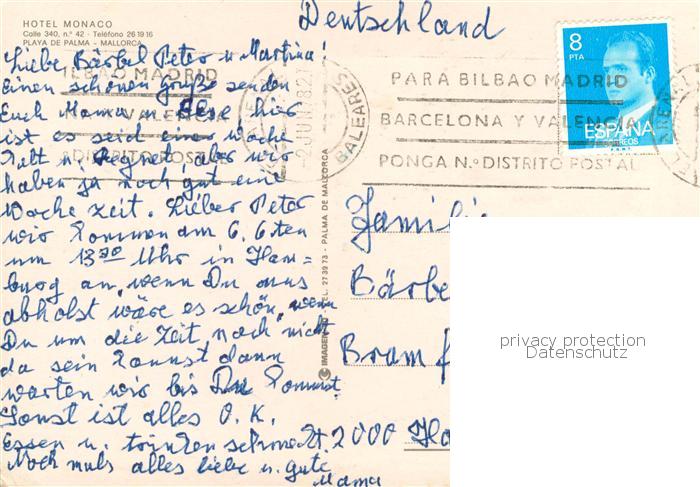 HOTEL MONACO
Calle 340, n.º 42 - Teléfono 26 19 16
PLAYA DE PALMA - MALLORCA
Deutschland
8
PTA
ESPAÑA
CORREOS
PARA BILBAO MADRID
BARCELONA Y VALENCIA
PONGA N.º DISTRITO POSTAL
BALEARES
BILBAO MADRID
VALENCIA
DISTRITO POSTAL
Liebe Bärbel Peter u Martina!
Einen schönen grüße senden
Euch Mama u hier
ist es seid einer Woche
kalt u Regnet, aber wir
haben ja noch gut eine
Woche Zeit. Lieber Peter
wir kommen am 6. 6ten
um 13 00 Uhr in Ham=
burg an, wenn Du uns
abholst wäre es schön, wenn
Du um die Zeit noch nicht
da sein kannst dann
warten wir bis Du kommst.
Sonst ist alles O. K.
Essen u. trinken schmeckt.
Noch mals alles liebe u. gute
Mama
IMAGEN
TEL. 27 39 73 - PALMA DE MALLORCA
Familie
Bärbe
Bramf
2000 Ha
privacy protection
Datenschutz